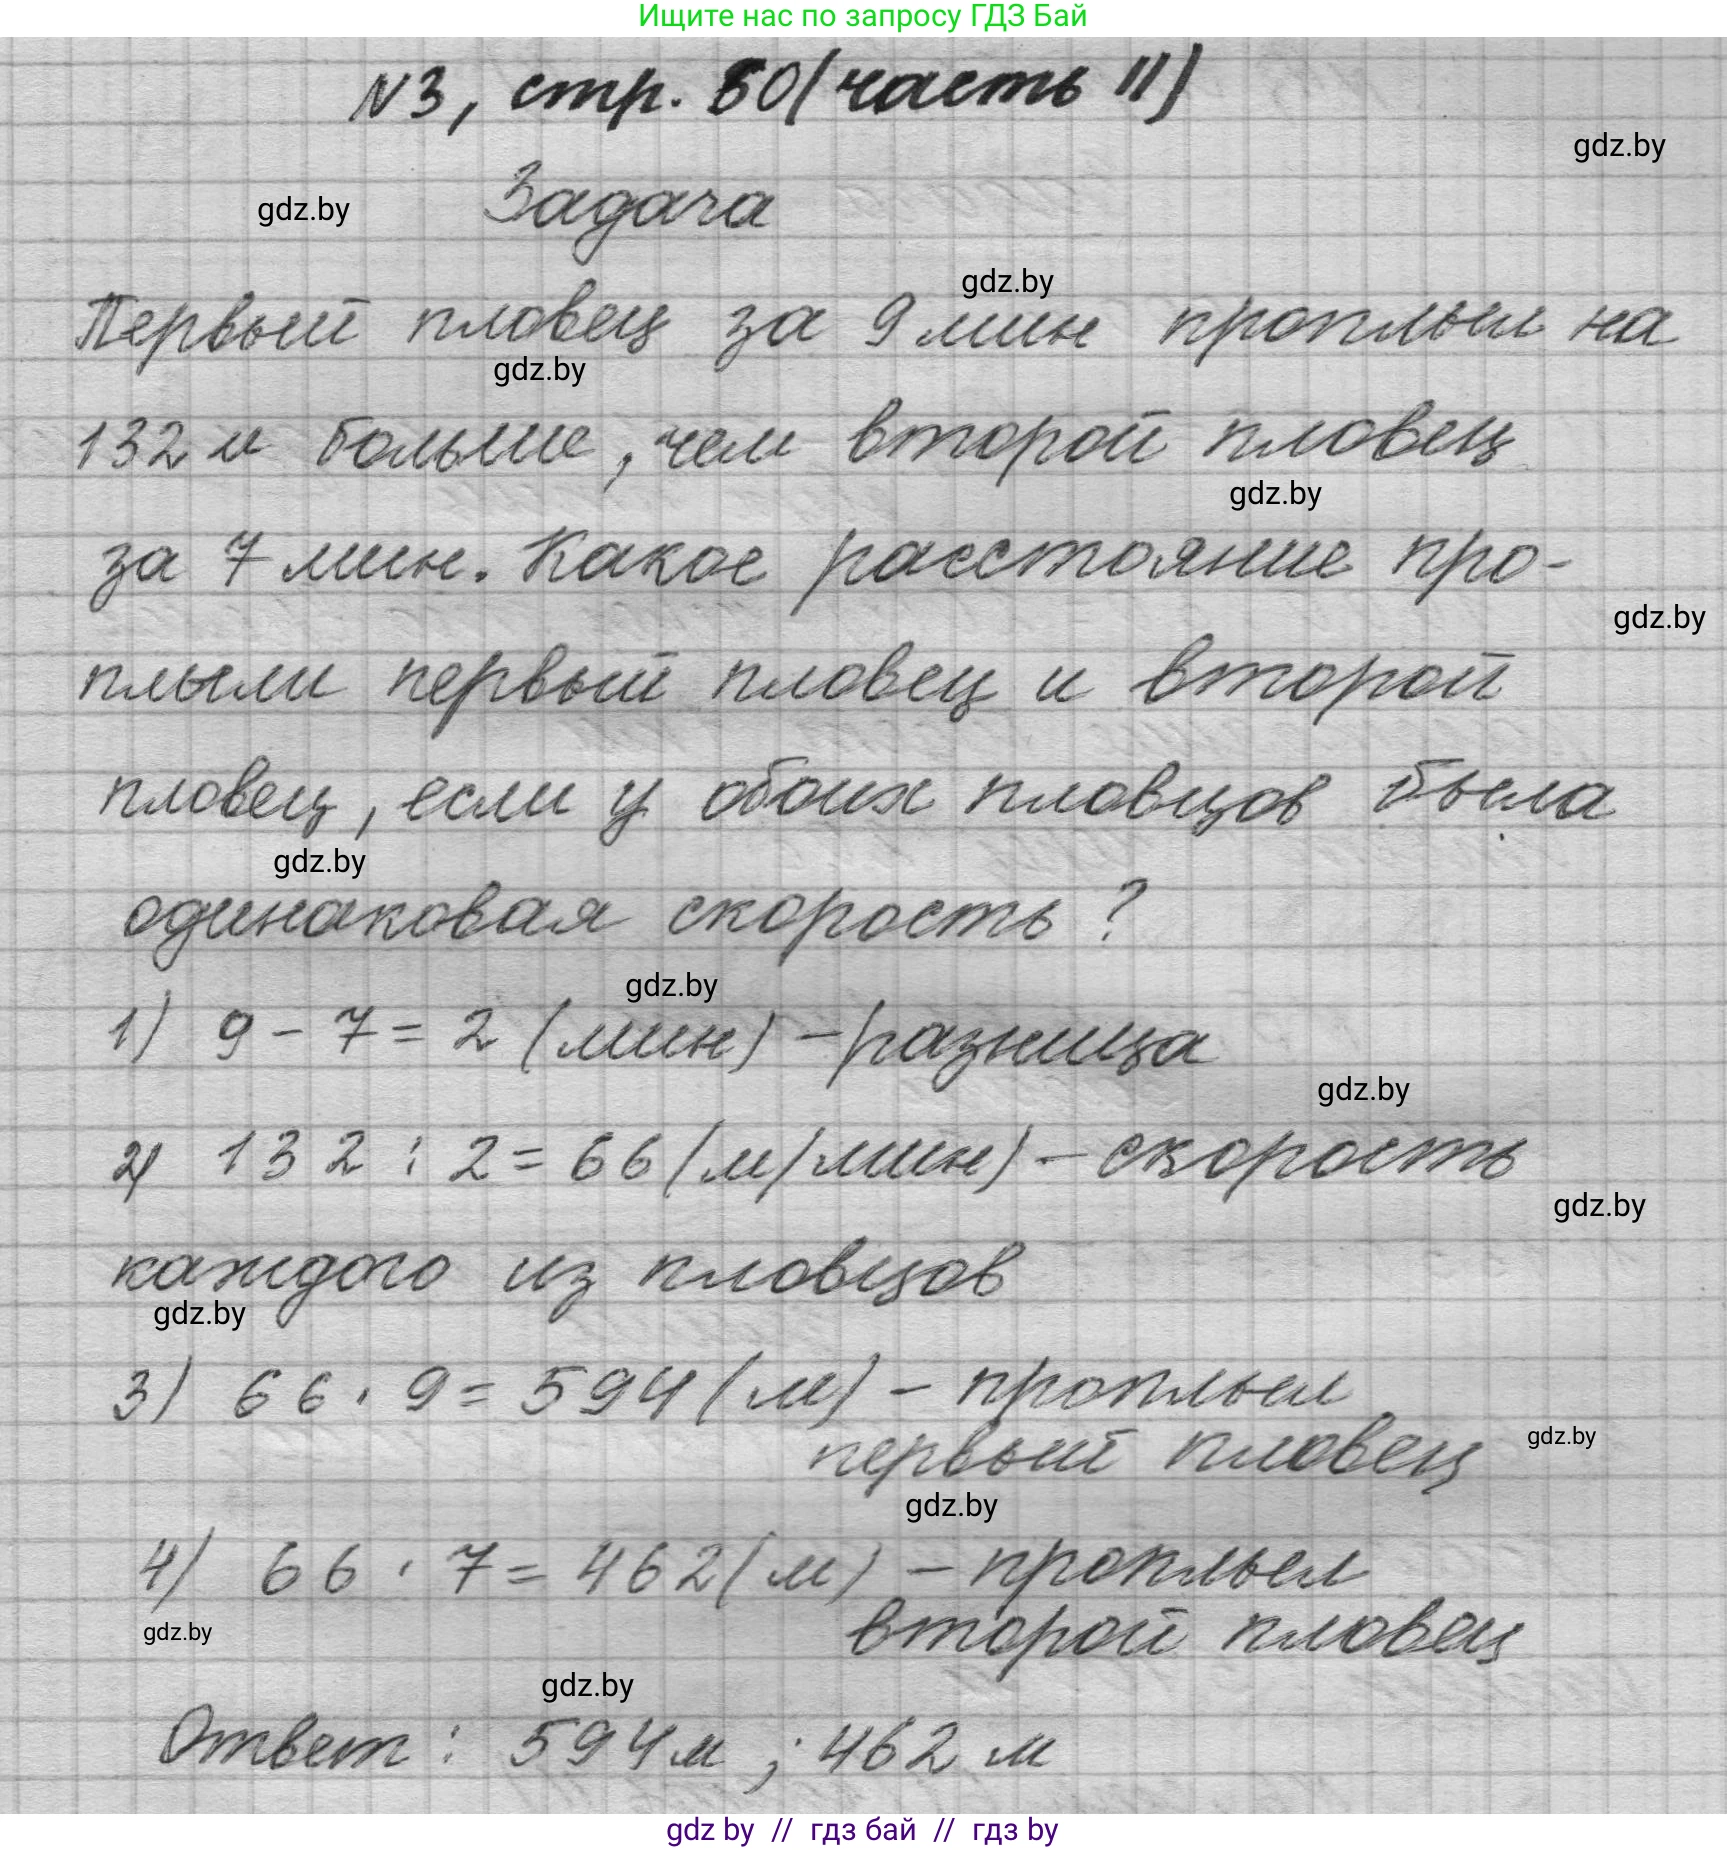 Ищите нас по запросу ГДЗ Бай
№3, стр. 50 (часть II)
gdz.by
gdz.by
Задача
gdz.by
Первый пловец за 9 мин проплыл на
gdz.by
132 м больше, чем второй пловец
gdz.by
за 7 мин. Какое расстояние про-
gdz.by
плыли первый пловец и второй
пловец, если у обоих пловцов была
gdz.by
одинаковая скорость?
gdz.by
1) 9 - 7 = 2 (мин) - разница
gdz.by
2) 132 : 2 = 66 (м/мин) - скорость
gdz.by
каждого из пловцов
gdz.by
3) 66 · 9 = 594 (м) - проплыл
первый пловец
gdz.by
gdz.by
4) 66 · 7 = 462 (м) - проплыл
второй пловец
gdz.by
gdz.by
Ответ: 594 м; 462 м
gdz by // гдз бай // гдз by